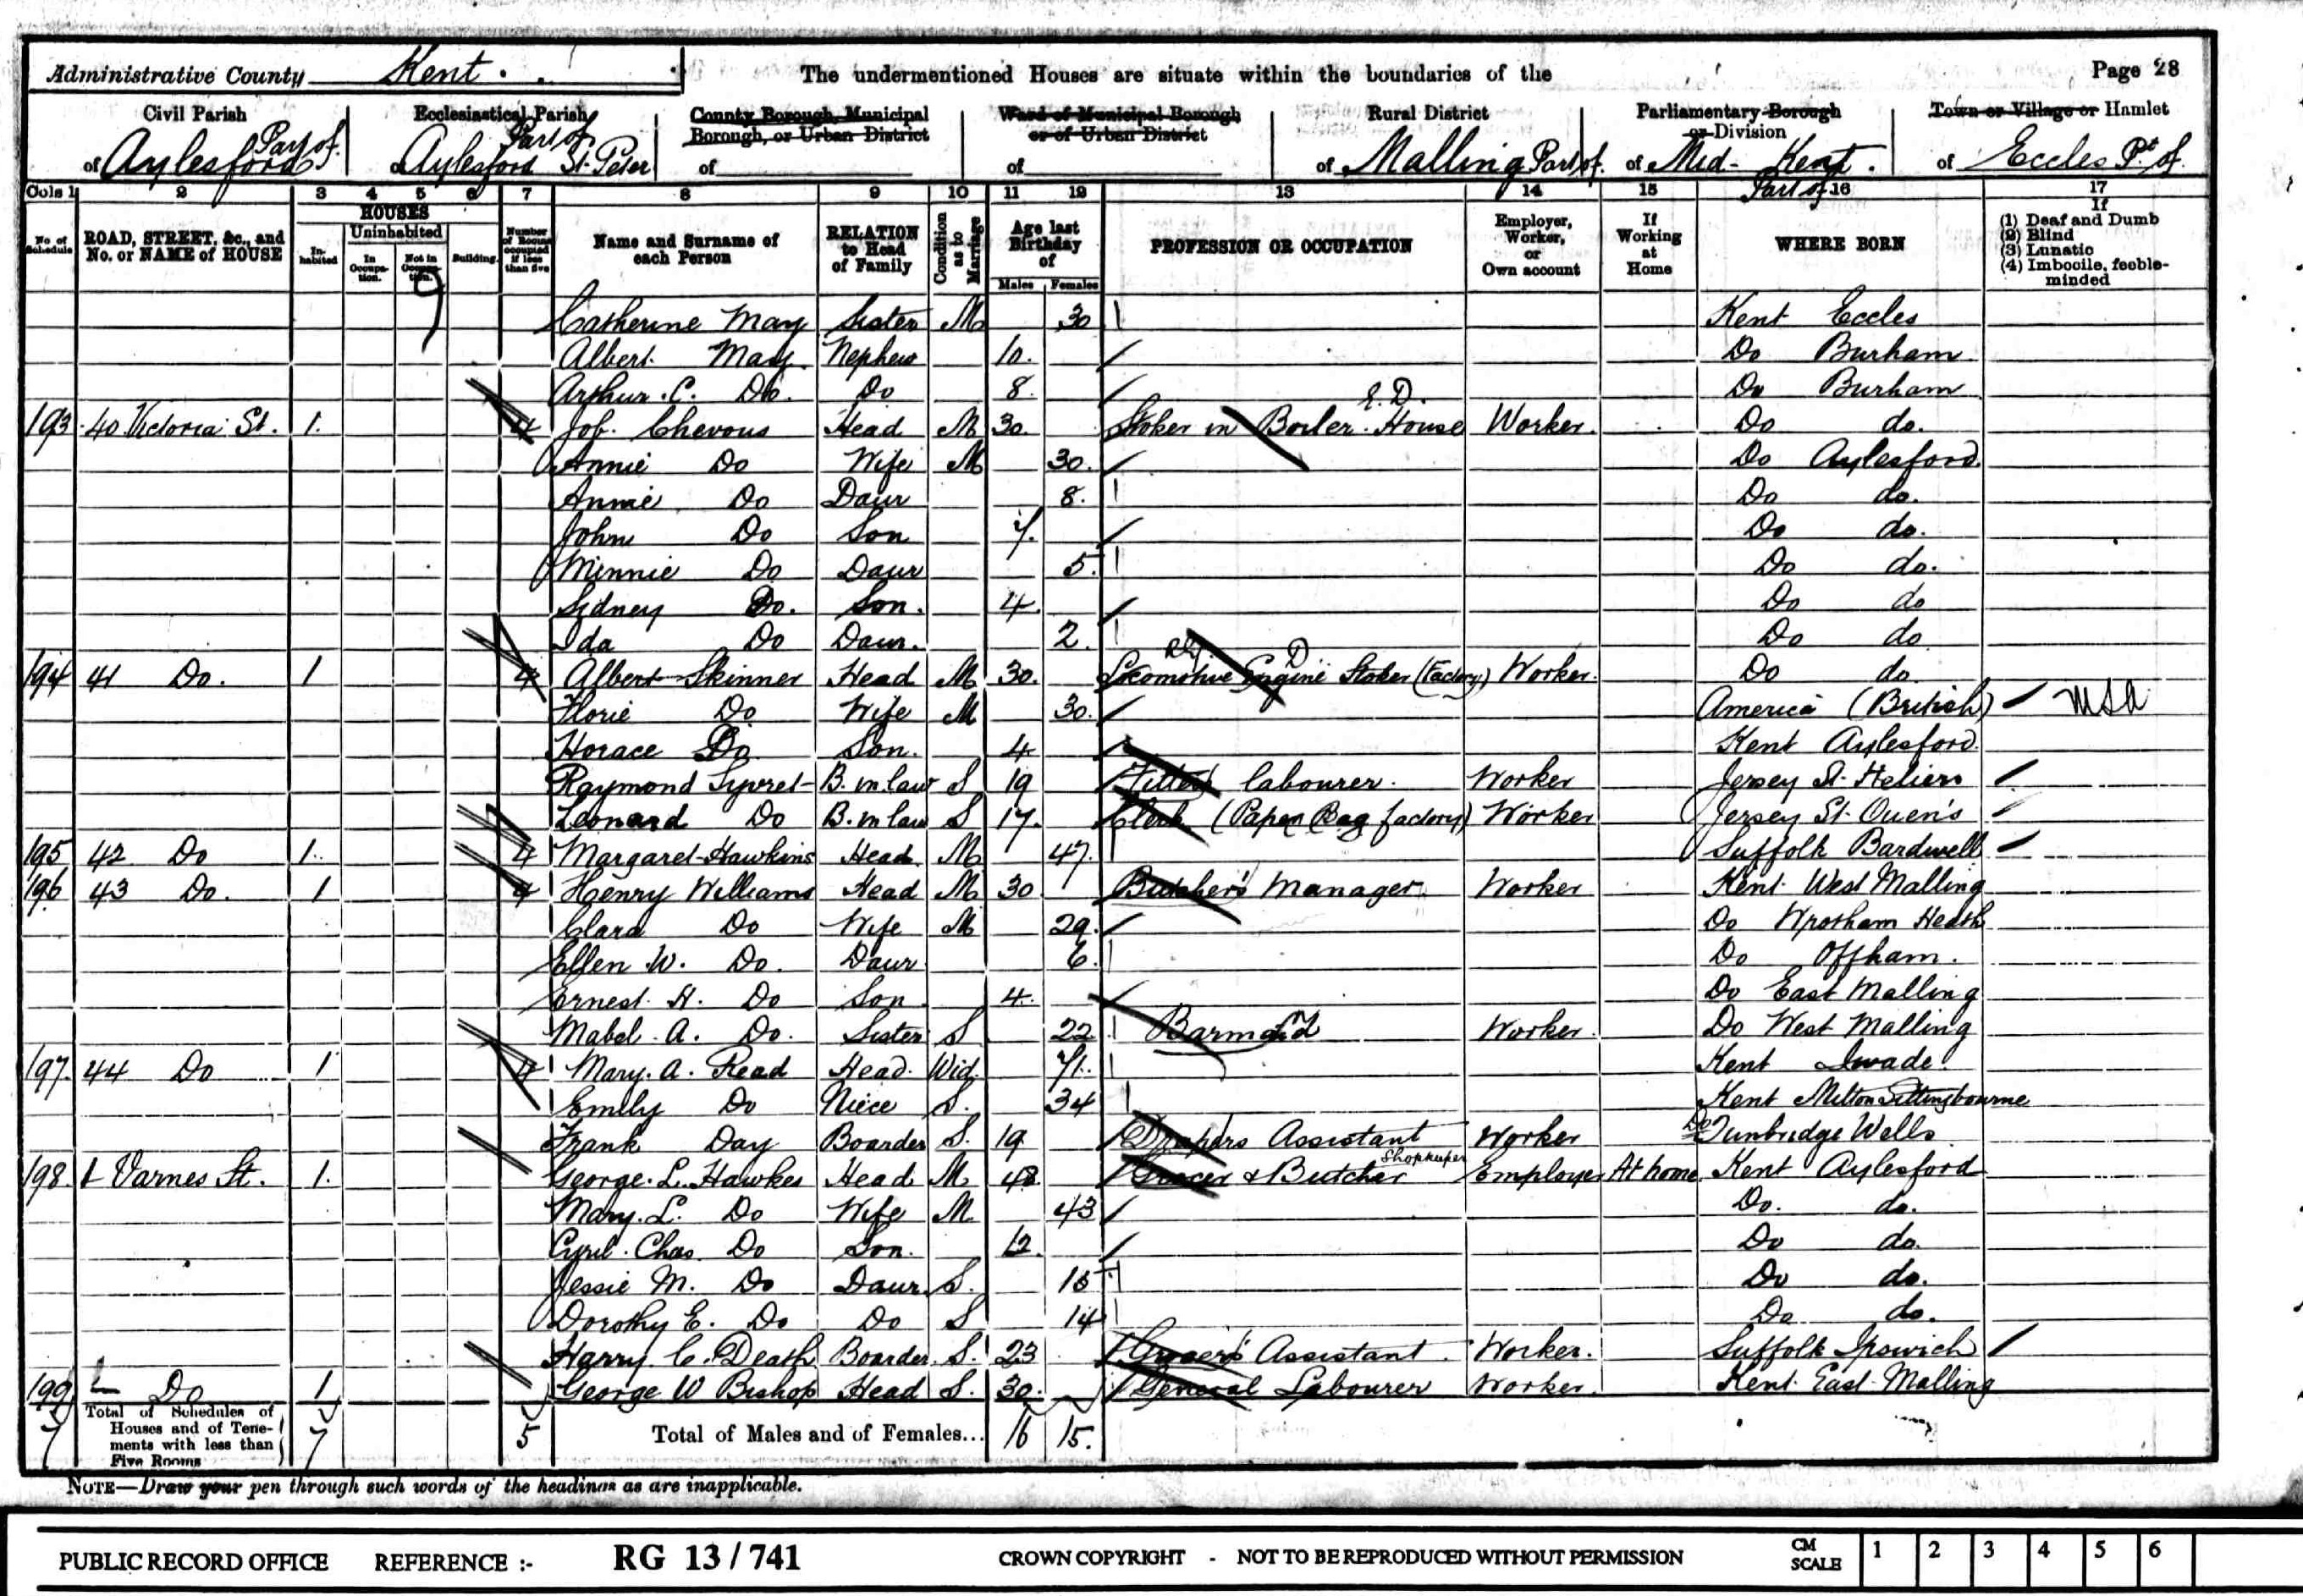 Administrative County Kent. The undermentioned Houses are situate within the boundaries of the Page 28
Civil Parish of Aylesford Part of. Ecclesiastical Parish of Part of Aylesford St. Peter County Borough, Municipal Borough, or Urban District of Ward of Municipal Borough or of Urban District of Rural District of Malling Part of. Parliamentary Borough or Division of Mid- Kent. Part of Town or Village or Hamlet of Eccles Pt of.
Cols 1 2 3 4 5 6 7 8 9 10 11 12 13 14 15 16 17
No of Schedule ROAD, STREET, &c., and No. or NAME of HOUSE HOUSES Inhabited Uninhabited In Occupation. Not in Occupation. Building. Number of Rooms occupied if less than five Name and Surname of each Person RELATION to Head of Family Condition as to Marriage Age last Birthday of Males Females PROFESSION OR OCCUPATION Employer, Worker, or Own account If Working at Home WHERE BORN If (1) Deaf and Dumb (2) Blind (3) Lunatic (4) Imbecile, feeble-minded
Catherine May Sister M 30 Kent Eccles
Albert May Nephew 10. Do Burham
Arthur. C. Do. Do 8. Do Burham
193 40 Victoria St. 1. 4 Job. Chevous Head M 30. Stoker in Boiler House E.D. Worker. Do do.
Annie Do Wife M 30. Do Aylesford
Annie Do Daur 8. Do do.
John Do Son 7. Do do.
Minnie Do Daur 5. Do do.
Sidney Do. Son. 4. Do do
Ida Do Daur. 2. Do do
194 41 Do. 1 4 Albert Skinner Head M 30. Locomotive Engine Stoker (Factory) Rly. D Worker. Do do
Florie Do Wife M 30. America (British)
Horace Do Son. 4 Kent Aylesford
Raymond Syvret B. in law S 19 Fitter's labourer. Worker Jersey St. Heliers
Leonard Do B. in law S 17. Clerk (Paper Bag factory) Worker Jersey St. Ouen's
195 42 Do 1. 4 Margaret Hawkins Head M 47. Suffolk Bardwell
196 43 Do. 1 4 Henry Williams Head M 30 Butcher's Manager Worker Kent West Malling
Clara Do Wife M 29. Do Wrotham Heath
Ellen W. Do. Daur 6. Do Offham.
Ernest H. Do Son 4. Do East Malling
Mabel. A. Do. Sister S 22 Barmaid Worker. Do West Malling
197. 44 Do 1 4 Mary. A. Read Head. Wid. 71. Kent Iwade.
Emily Do Niece S. 34 Kent Milton Sittingbourne
Frank Day Boarder S. 19 Drapers Assistant Worker Do Tunbridge Wells
198. 1 Varnes St. 1. George. L. Hawkes Head M. 48 Grocer & Butcher Shopkeeper Employer At home Kent Aylesford
Mary. L. Do Wife M 43 Do. do.
Cyril. Chas. Do Son. 12. Do do.
Jessie M. Do Daur. S. 15 Do do.
Dorothy E. Do Do S 14 Do do.
Harry C. Death Boarder S. 23 Grocer's Assistant. Worker. Suffolk Ipswich
199. Do 1 George W Bishop Head S. 30. General Labourer Worker. Kent East Malling
7 Total of Schedules of Houses and of Tenements with less than Five Rooms 7 5 Total of Males and of Females... 16 15.
NOTE—Draw your pen through such words of the headings as are inapplicable.
PUBLIC RECORD OFFICE REFERENCE :- RG 13 / 741 CROWN COPYRIGHT - NOT TO BE REPRODUCED WITHOUT PERMISSION CM SCALE 1 2 3 4 5 6